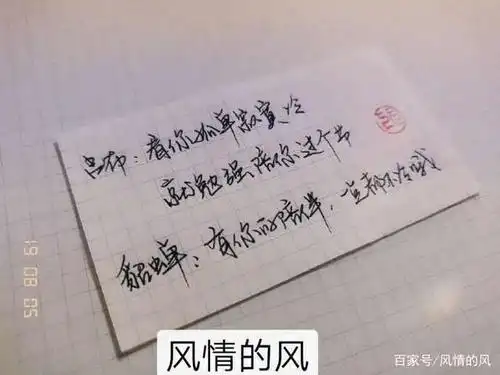 吕布：看你孤单寂寞冷
就勉强陪你过个节
貂蝉：有你的陪伴，一点都不冷哦
19 08 05
风情的风
百家号/风情的风